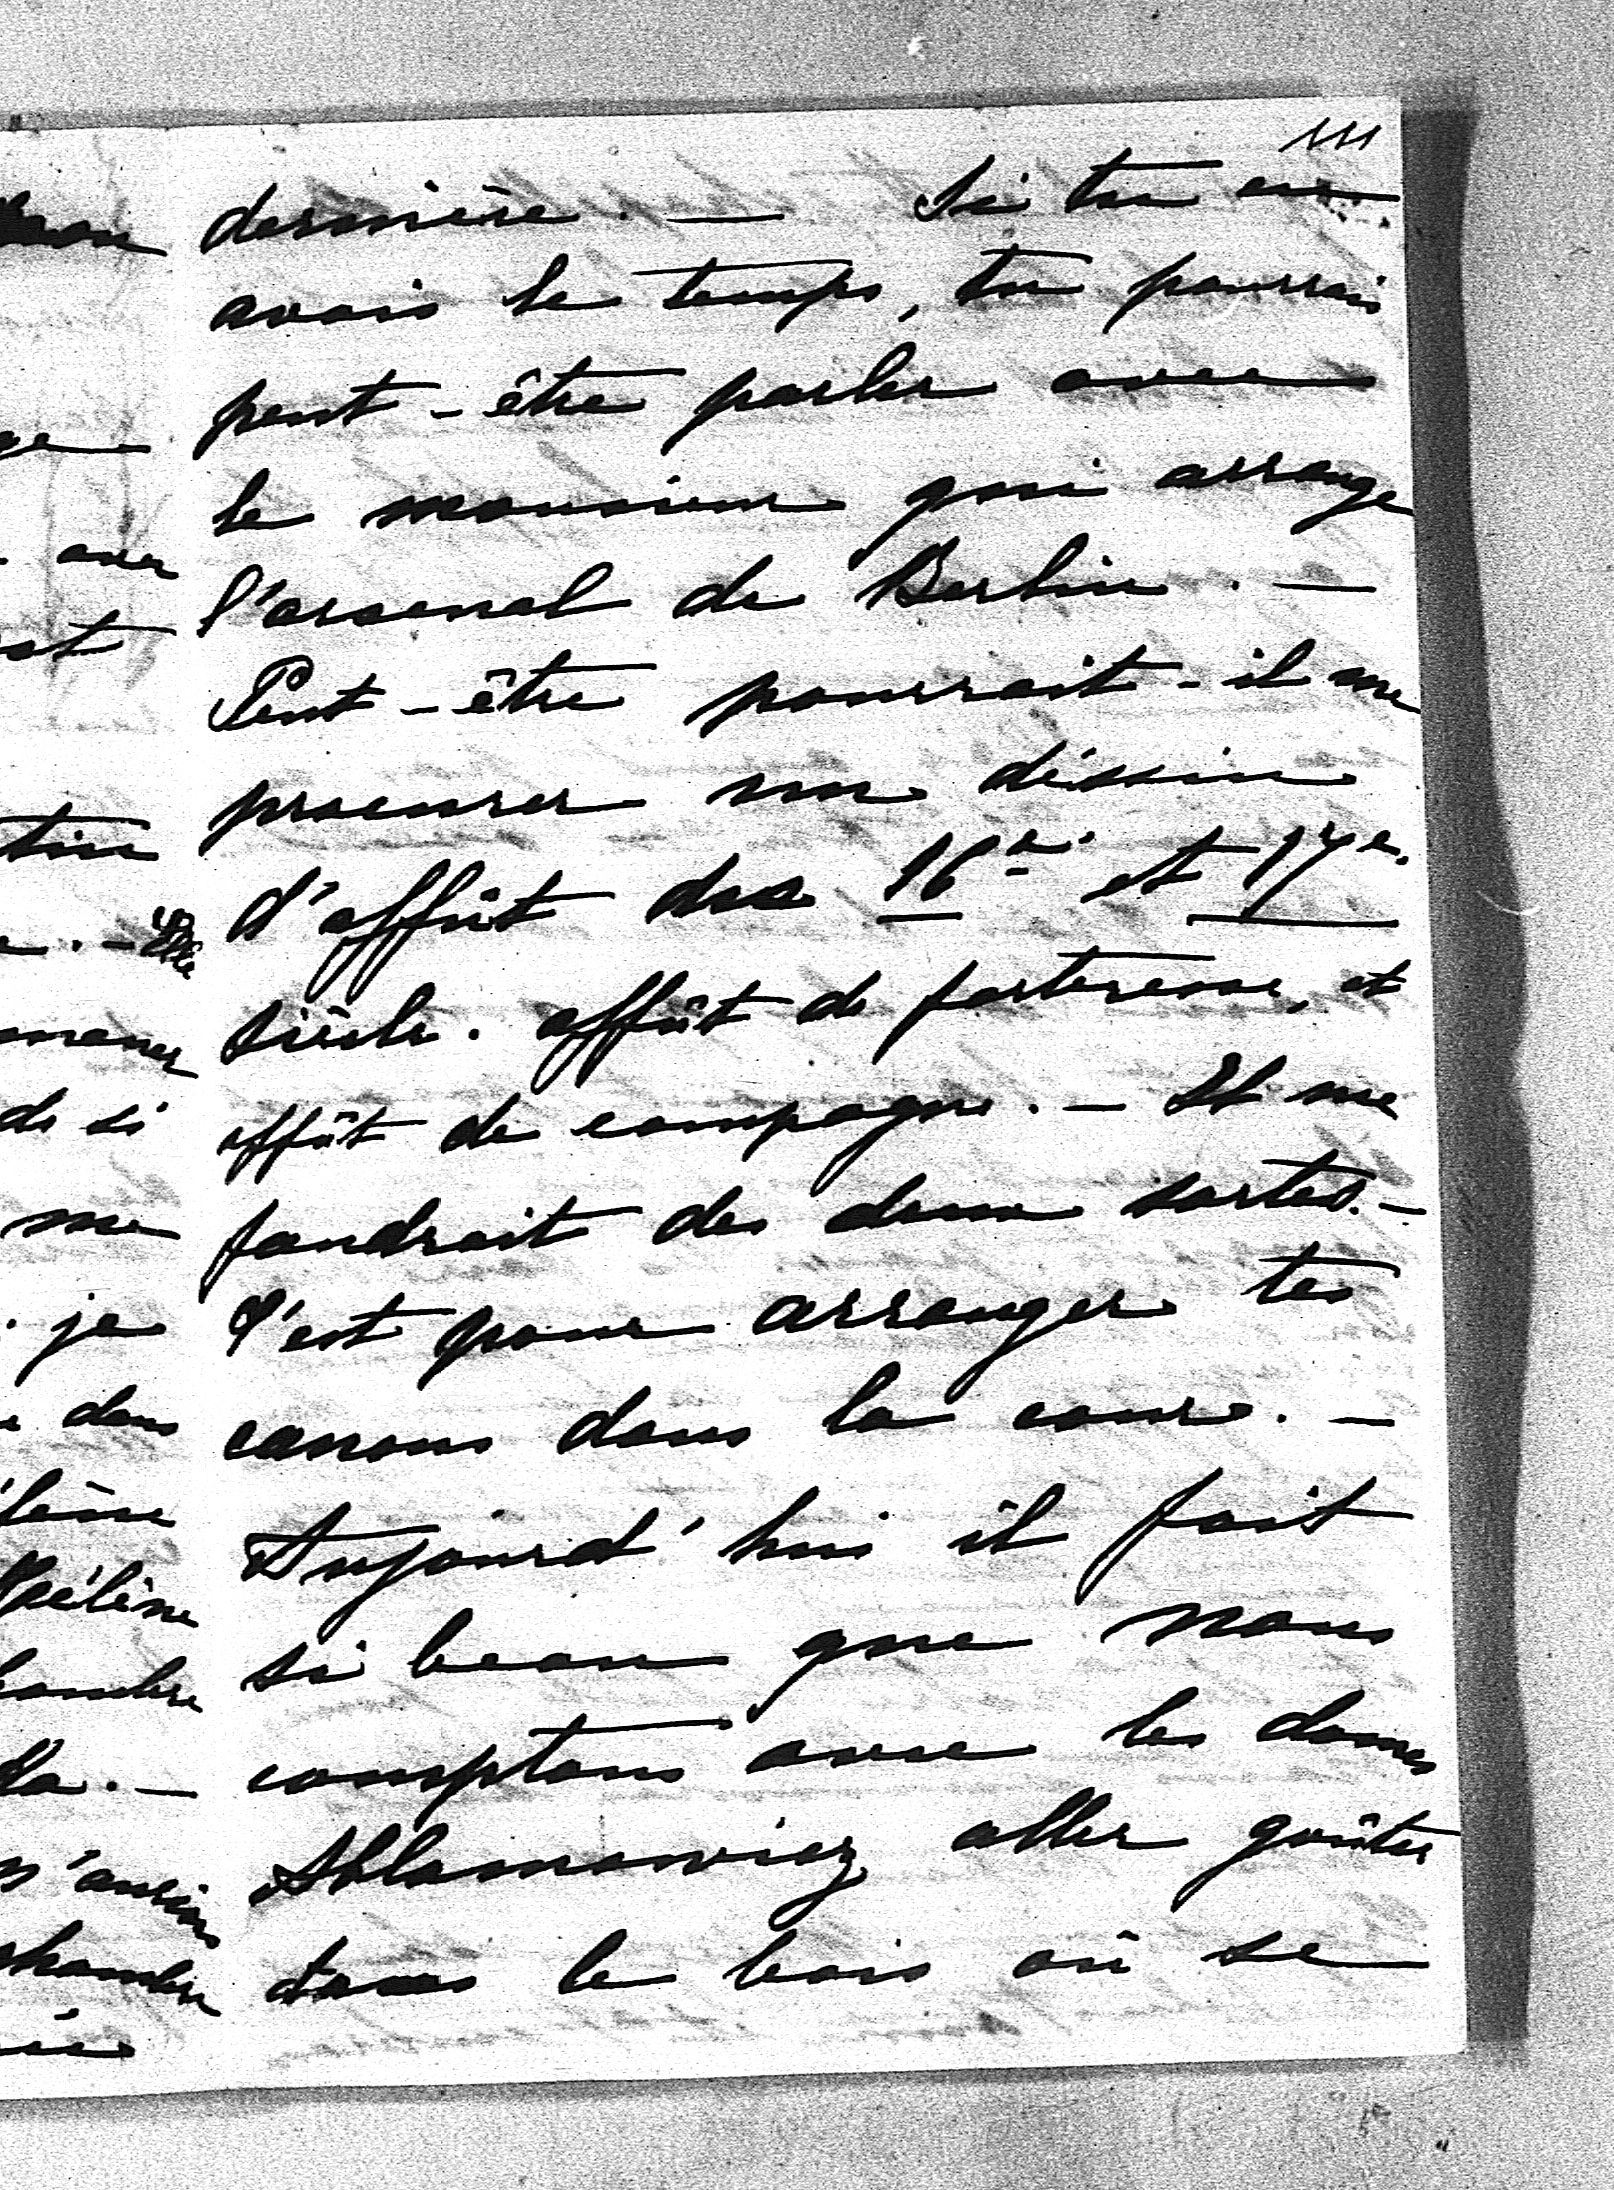 111
dernière. — Si tu en
avais le temps, tu pourrais
peut-être parler avec
le monsieur qui arrange
l'arsenal de Berlin. —
Peut-être pourrait-il me
procurer un dessin
d'affût des 16e. et 17e.
siècle. affût de forteresse, et
affût de campagne. — Il me
faudrait des deux sortes. —
C'est pour arranger tes
canons dans la cour. —
Aujourd'hui il fait
si beau que nous
comptons avec les dames
aller goûter
dans le bois où se
avec
tin
. — Elle
mener
de si
me
. je
dans
Hélène
da. —
chambre